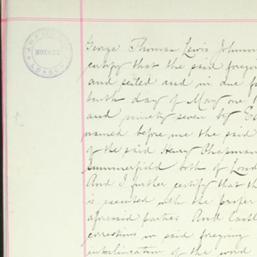 George Thomas Lewis Johnson
certify that the said foregoing
and sealed and in one for
day of May one
and ninety seven by
named before me the said
of the said Henry Chapman
Summerfield both of Lond
And I further certify that th
is executed with the proper
aforesaid parties And Each
correction in said foregoing
interlineation of the word